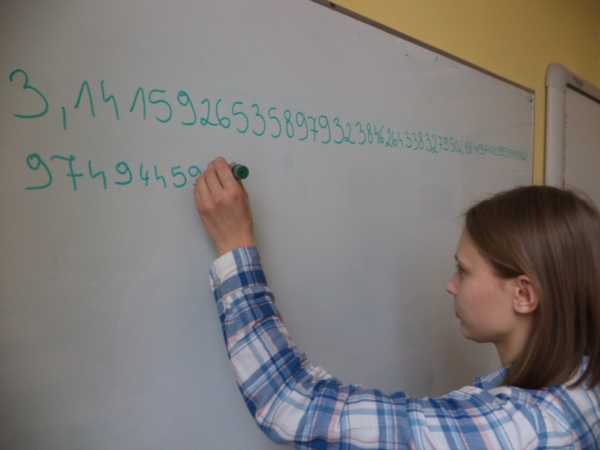 3,141592653589793238462643383279502884197169399375105820
97494459